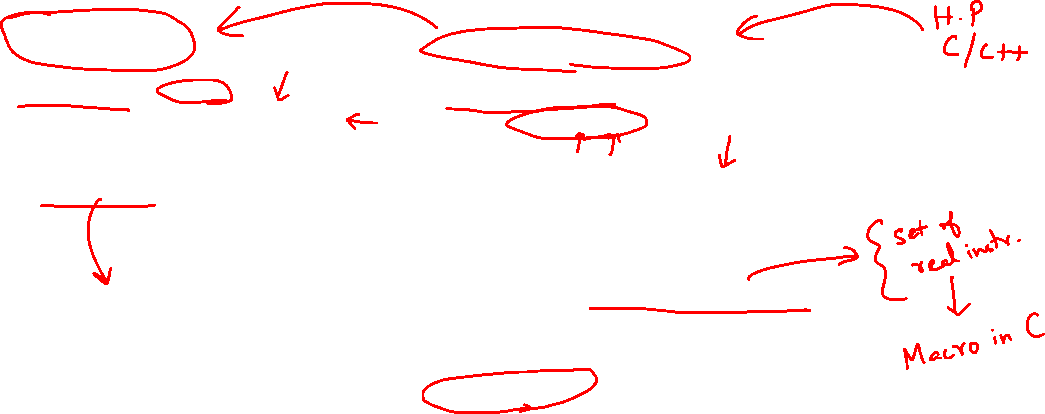 H.P
C/C++
set of
real instr.
Macro in C